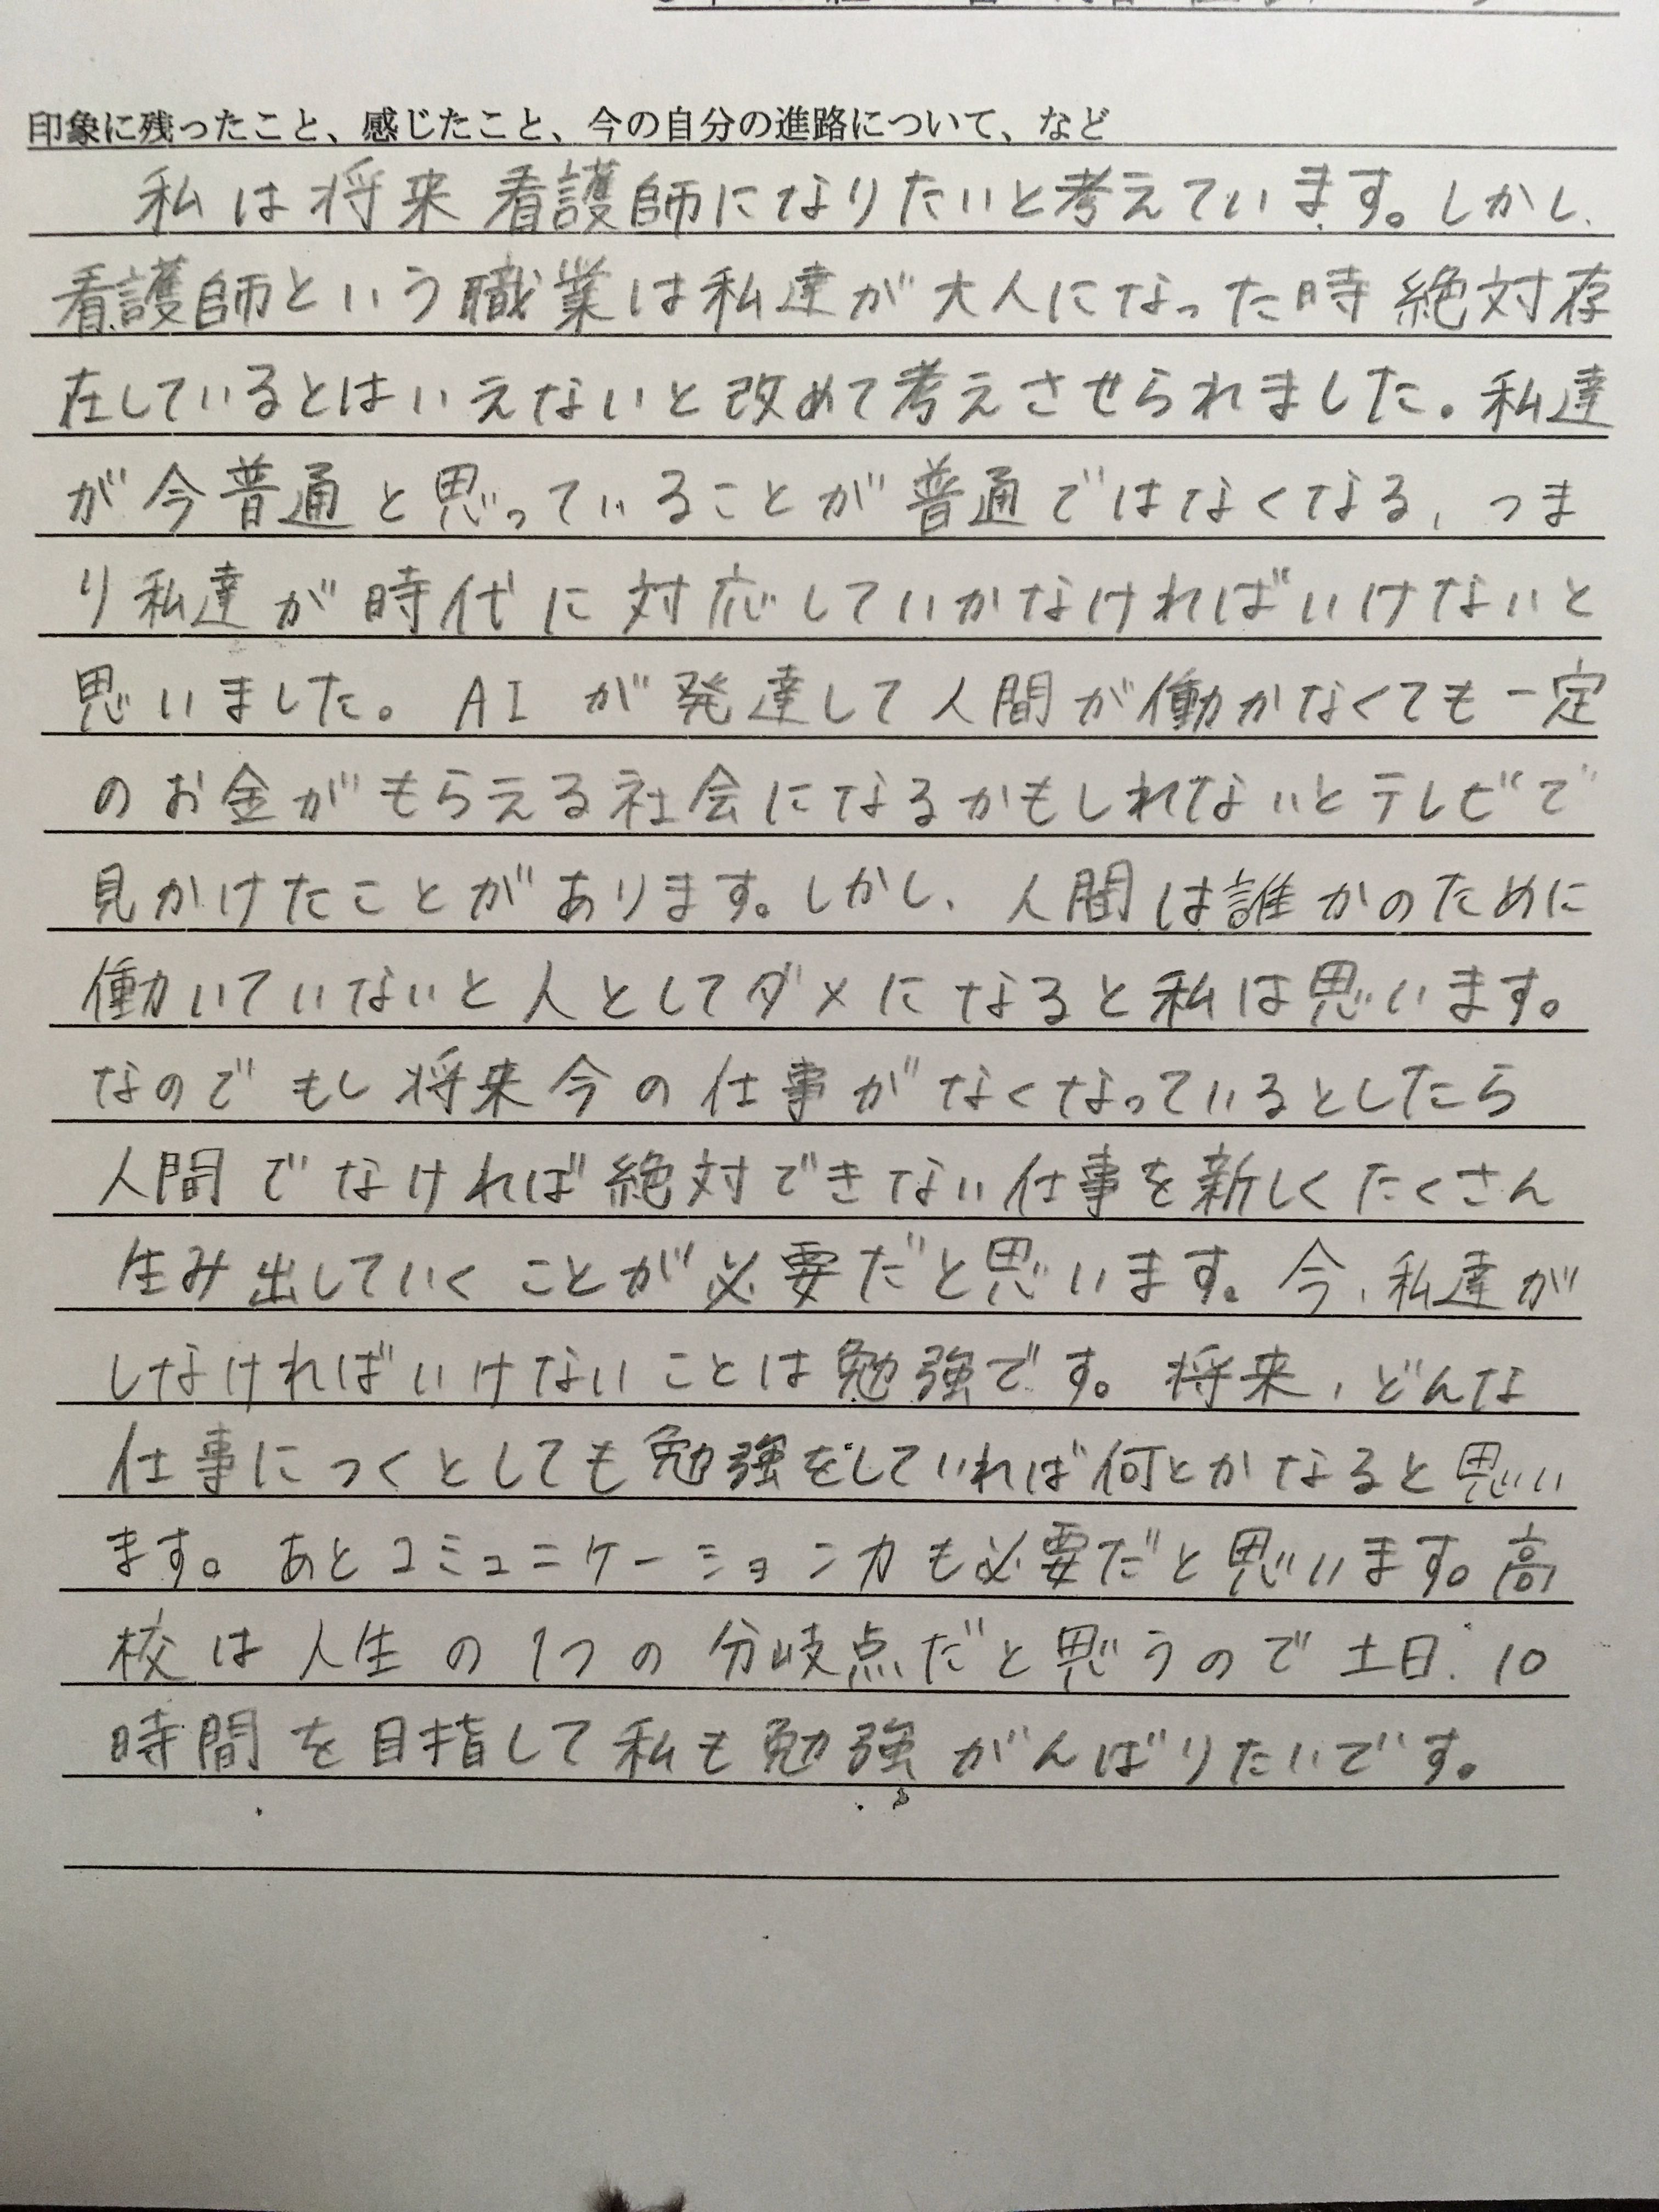 印象に残ったこと、感じたこと、今の自分の進路について、など
私は将来看護師になりたいと考えています。しかし、
看護師という職業は私達が大人になった時絶対存
在しているとはいえないと改めて考えさせられました。私達
が今普通と思っていることが普通ではなくなる、つま
り私達が時代に対応していかなければいけないと
思いました。AIが発達して人間が働かなくても一定
のお金がもらえる社会になるかもしれないとテレビで
見かけたことがあります。しかし、人間は誰かのために
働いていないと人としてダメになると私は思います。
なのでもし将来今の仕事がなくなっているとしたら
人間でなければ絶対できない仕事を新しくたくさん
生み出していくことが必要だと思います。今、私達が
しなければいけないことは勉強です。将来、どんな
仕事につくとしても勉強をしていれば何とかなると思い
ます。あとコミュニケーション力も必要だと思います。高
校は人生の1つの分岐点だと思うので土日10
時間を目指して私も勉強がんばりたいです。